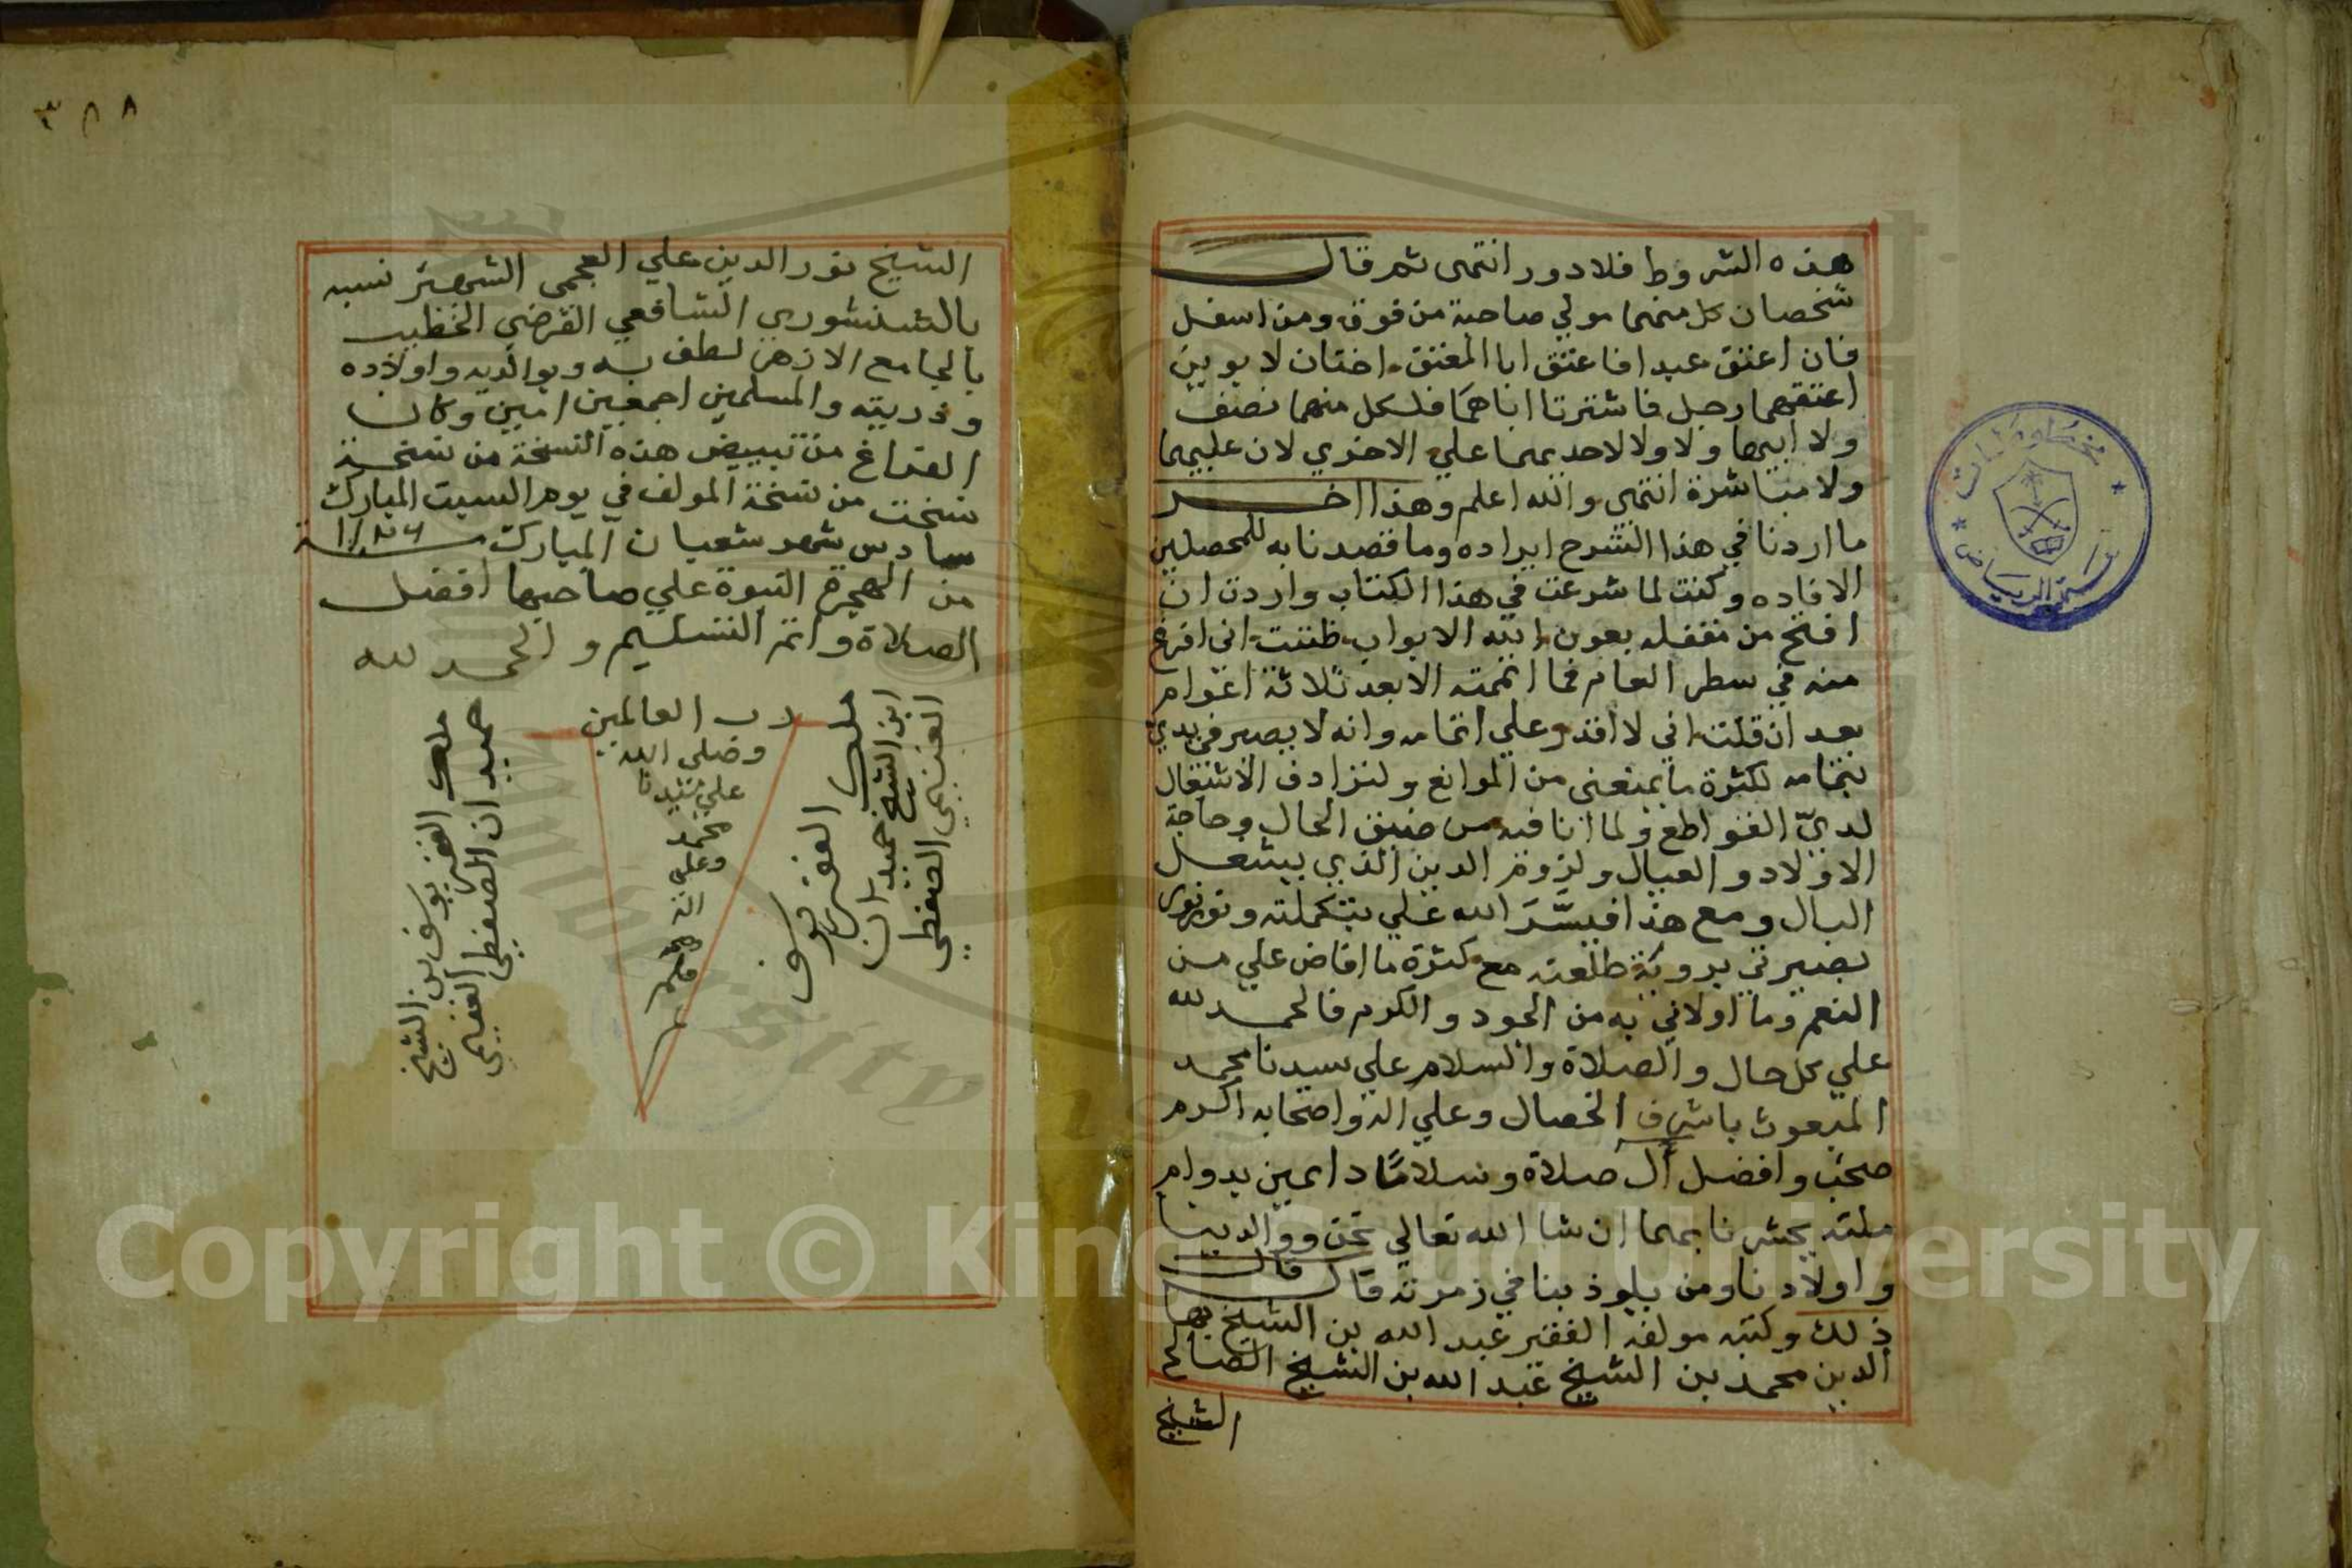 هذه الشروط فلا دور انتهى ثم قال
شخصان كل منهما مولي صاحبه من فوق ومن اسفل
فان اعتق عبدا فاعتق ابا المعتق اختان لابوين
اعتقهما رجل فاشترتا اباهما فلكل منهما نصف
ولا ابيها ولا ولا لاحديهما علي الاخري لان عليهما
ولا مباشرة انتهى والله اعلم وهذا اخر
ما اردنا في هذا الشرح ايراده وما قصدنا به للمحصلين
الافاده وكنت لما شرعت في هذا الكتاب واردت ان
افتح من مقفله بعون الله الابواب ظننت اني افرغ
منه في سطر العام فما اتممته الا بعد ثلاثة اعوام
بعد ان قلت اني لا اقدر علي اتمامه وانه لا يصير في يدي
بتمامه لكثرة ما يمنعني من الموانع ولتزادف الاشتغال
لدي القواطع ولما انا فيه من ضيق الحال وحاجة
الاولاد والعيال ولزوم الدين الذي يشغل
البال ومع هذا فيسر الله علي بتكملته ونور
بصيرتي برويه طلعته مع كثرة ما افاض علي من
النعم وما اولاني به من الجود والكرم فالحمد لله
علي كل حال والصلاة والسلام علي سيدنا محمد
المبعوث باشرف الخصال وعلي اله واصحابه اكرم
صحب وافضل آل صلاة وسلاما دايمين بدوام
ملته يحشرنا بهما ان شا الله تعالي نحن ووالدينا
واولادنا ومن يلوذ بنا في زمرته قال قال
ذلك وكتبه مولفه الفقير عبد الله بن الشيخ بها
الدين محمد بن الشيخ عبد الله بن الشيخ الصالح
الشيخ
مخطوطات
الرياض
٣٨٨
الشيخ نور الدين علي العجمي الشهير نسبه
بالشنشوري الشافعي الفرضي الخطيب
بالجامع الازهر لطف به وبوالديه واولاده
وذريته والمسلمين اجمعين امين وكان
الفراغ من تبييض هذه النسخة من نسخة
نسخت من نسخة المولف في يوم السبت المبارك
سادس شهر شعبان المبارك سنة
من الهجرة النبوة علي صاحبها افضل
الصلاة واتم التسليم والحمد لله
رب العالمين
وصلى الله
علي سيدنا
محمد
وعلي
اله
وصحبه
وسلم
ملك الفقير يوسف
ابن الشيخ حميدان
الغنيمي الصفطي
ملك الفقير يوسف بن الشيخ
حميدان الصفطي الغنيمي
Copyright © King Saud University